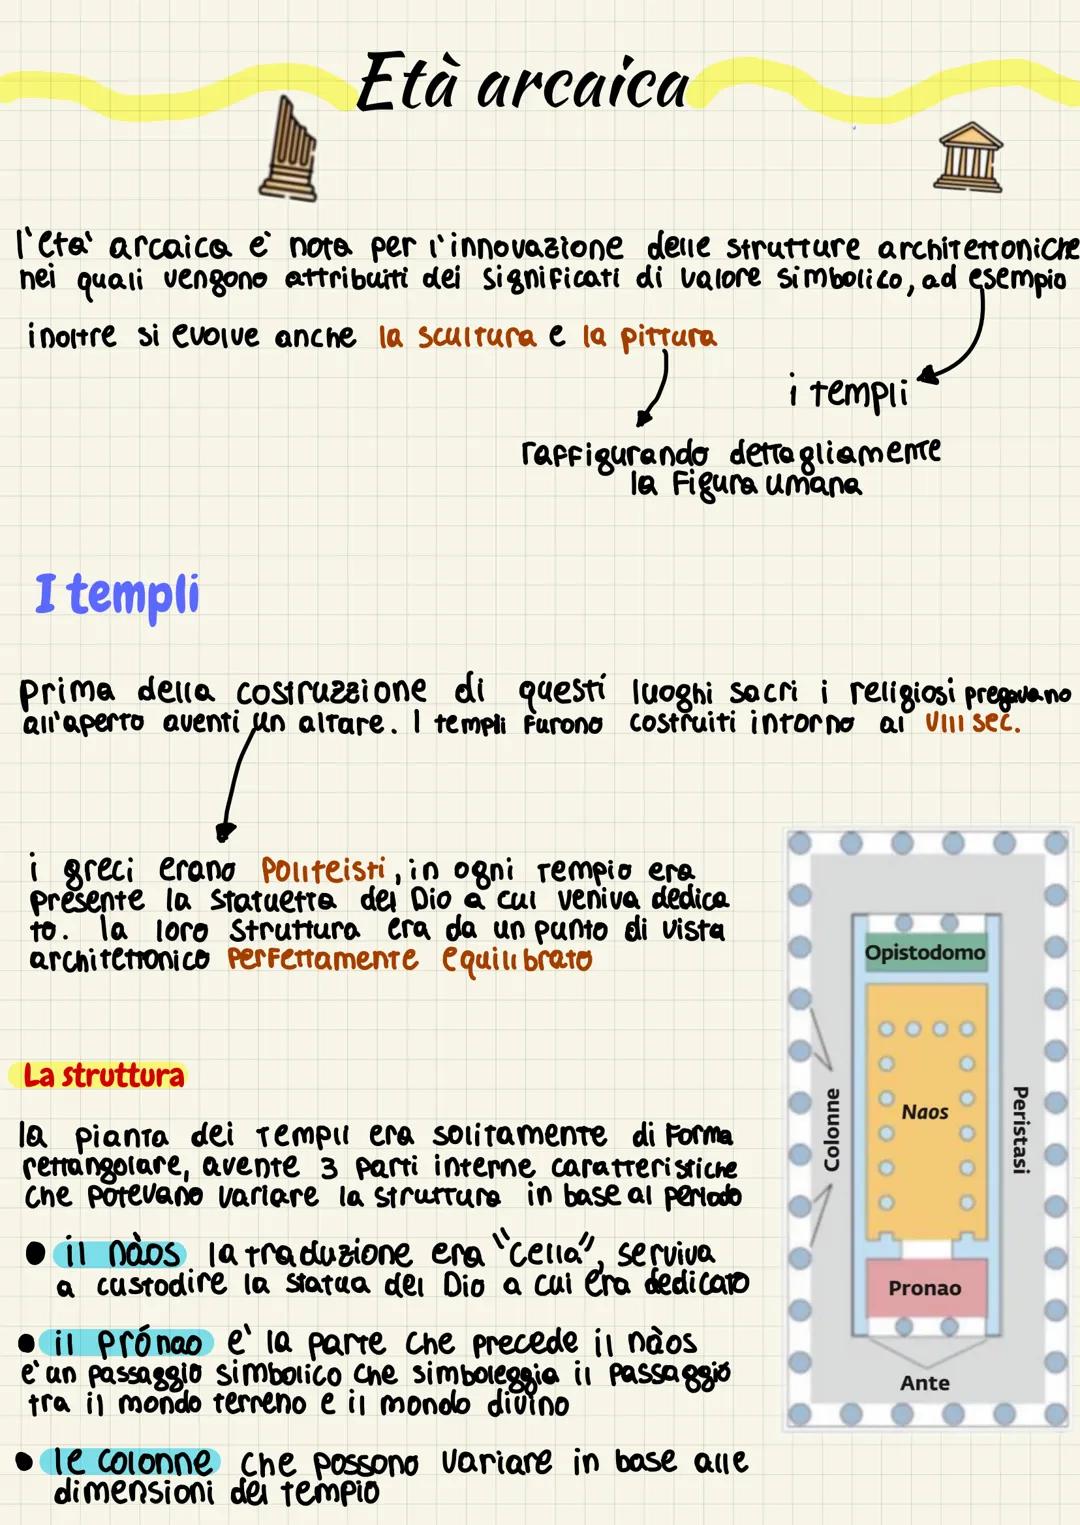 Età arcaica
l'età arcaica è nota per l'innovazione delle strutture architettoniche
nei quali vengono attribuiti dei significati di valore simbolico, ad esempio
inoltre si evolve anche la scultura e la pittura
i templi
raffigurando dettagliamente
la figura umana
I templi
prima della costruzzione di questi luoghi sacri i religiosi pregavano
all'aperto aventi un altare. I templi furono costruiti intorno al VIII sec.
i greci erano politeisti, in ogni tempio era
presente la statuetta del Dio a cui veniva dedica
to. la loro struttura era da un punto di vista
architettonico perfettamente equilibrato
La struttura
la pianta dei templi era solitamente di forma
rettangolare, avente 3 parti interne caratteristiche
che potevano variare la struttura in base al periodo
• il nàos la traduzione era "cella", serviva
a custodire la statua del Dio a cui era dedicato
• il prónao è la parte che precede il nàos
è un passaggio simbolico che simboleggia il passaggio
tra il mondo terreno e il mondo divino
• le colonne che possono variare in base alle
dimensioni del tempio
Opistodomo
Naos
Colonne
Peristasi
Pronao
Ante